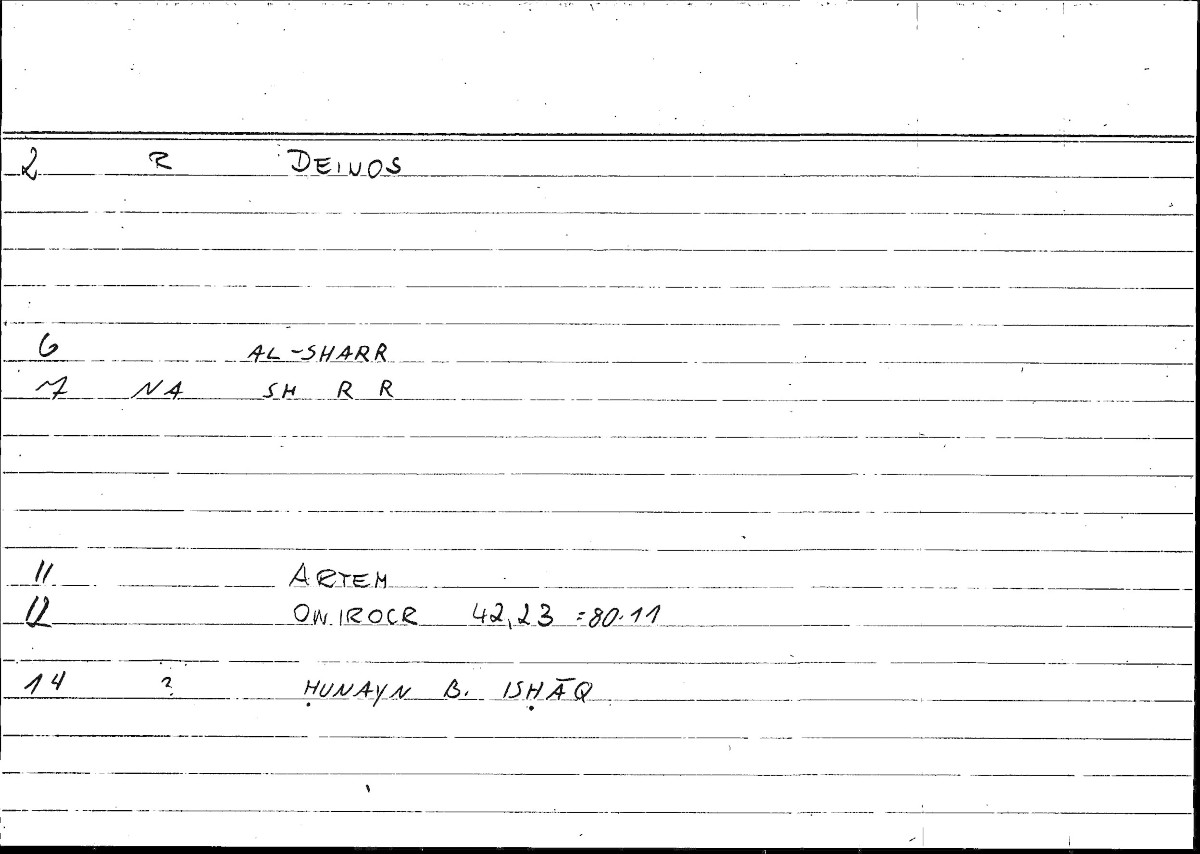 2 R DEINOS
6 AL-SHARR
7 NA SH R R
11 ARTEM
12 ONIROCR 42,23 =80.11
14 ? ḤUNAYN B. ISḤĀQ